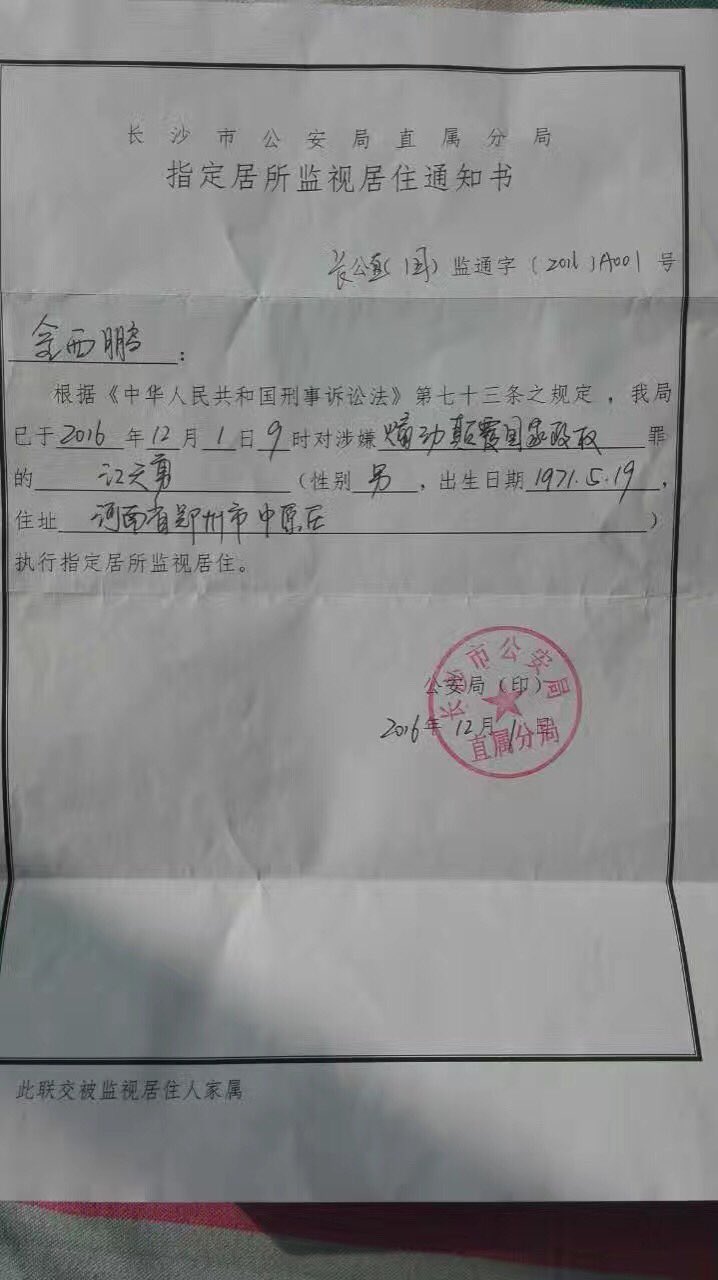 长沙市公安局直属分局
指定居所监视居住通知书
长公直(国)监通字(2016)A001号
金西鹏：
根据《中华人民共和国刑事诉讼法》第七十三条之规定，我局
已于2016年12月1日9时对涉嫌煽动颠覆国家政权罪
的江天勇(性别男，出生日期1971.5.19，
住址河南省郑州市中原区)
执行指定居所监视居住。
公安局(印)
2016年12月1日
长沙市公安局
直属分局
此联交被监视居住人家属